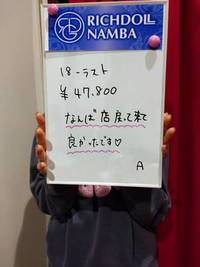 RICHDOLL
NAMBA
18-ラスト
¥47,800
なんば店戻って来て
良かったです♡
A